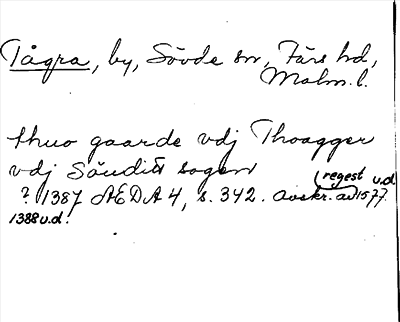 Tågra, by, Sövde sn, Färs hd,
Malm. l.
thuo gaarde vdj Thoagger
vdj Söuditt sogen
(regest u.d.
? 1387 ÆDA 4, s. 342. avskr. av 1577.
1388 u.d.